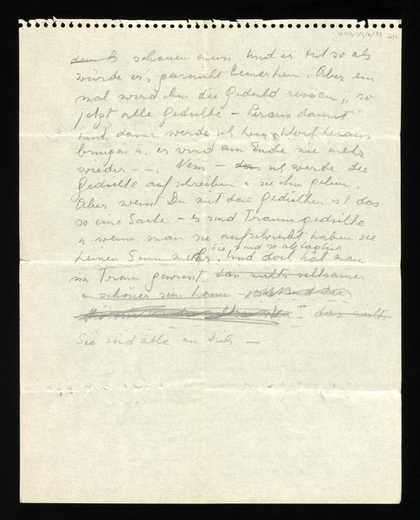 schauen muss. Und er tut so als
würde er's garnicht bemerken. Aber ein
mal wird ihm die Geduld reissen, so
jetzt alle Gedichte – heraus damit
und dann werde ich kein Wort heraus
bringen u. es wird am Ende nie mehr
wieder – . Nein – ich werde die
Gedichte aufschreiben u. sie ihm geben.
Aber weisst Du mit den Gedichten ist das
so eine Sache – es sind Traumgedichte
u. wenn man sie aufschreibt haben sie
keinen Sinn mehr. Und doch hat man
im Traum geweint, seltsamer
u. schöner sein kann
Sie sind alle an Dich –